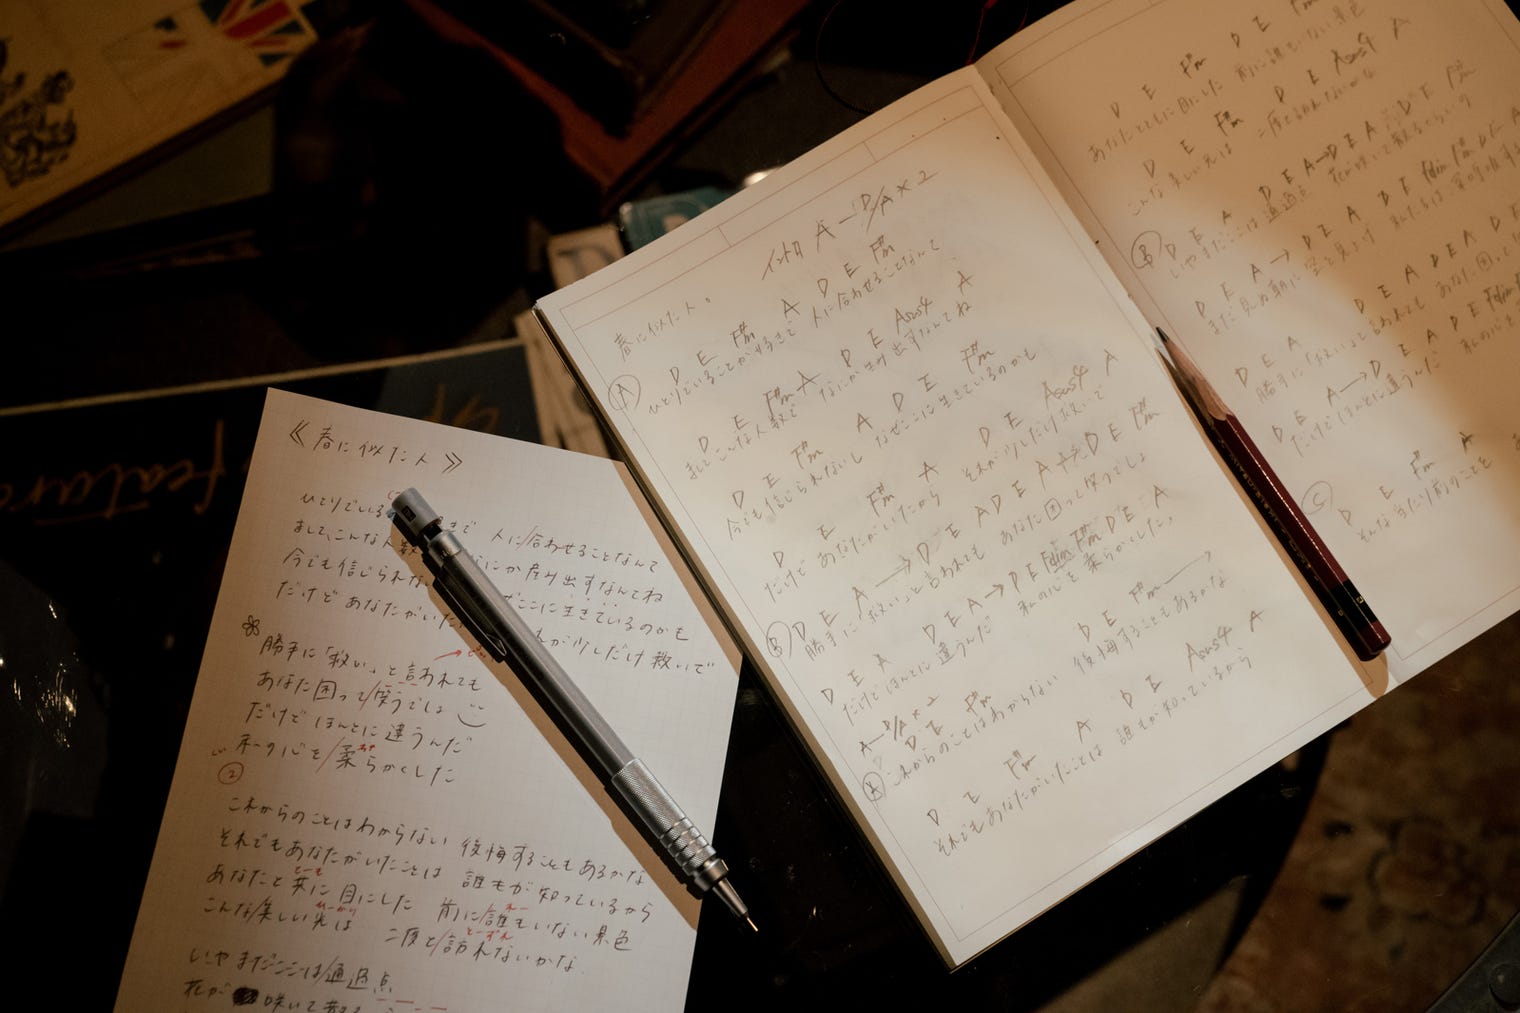 《春に似た人》
ひとりでいる
で 人に合わせることなんて
ましてこんな人数
なにか産み出すなんてね
今でも信じられな
ぜここに生きているのかも
だけどあなたがいた
れが少しだけ救いで
勝手に「救い」と言われても
あなた困って笑うでしょ
だけどほんとに違うんだ
私の心を柔らかくした
②
これからのことはわからない 後悔することもあるかな
それでもあなたがいたことは 誰もが知っているから
あなたと共に目にした 前に誰もいない景色
こんな美しい光は 二度と訪れないかな
いやまだここは通過点
花が 咲いて
春に似た人。
イントロ A—D/A×2
Ⓐ D E F#m A D E F#m
ひとりでいることが好きで 人に合わせることなんて
D E F#m A D E Asus4 A
ましてこんな人数で なにか生み出すなんてね
D E F#m A D E F#m
今でも信じられないし なぜここに生きているのかも
D E F#m A D E Asus4 A
だけどあなたがいたから それが少しだけ救いで
Ⓑ D E A→D E A D E A D E F#m
勝手に「救い」と言われても あなた困って笑うでしょ
D E A D E A→D E Fdim F#m D E A
だけどほんとに違うんだ 私の心を柔らかくした。
A—D/A×2
Ⓐ D E F#m D E F#m
これからのことはわからない 後悔することもあるかな
D E F#m A D E Asus4 A
それでもあなたがいたことは 誰もが知っているから
D E F#m D E F#m
あなたとともに目にした 前に誰もいない景色
D E F#m D E Asus4 A
こんな美しい光は 二度と訪れないかな
Ⓑ D E A D E A→D E A D E F#m
いやまだここは通過点 花が咲いて散るくらいの
D E A→D E A D E Fdim F#m D E A
まだ見ぬ朝に 空を見上げ 私たちは
D E A D E A D E A D E
勝手に「救い」と言われても あなた困って
D E A→D E A D E Fdim
だけどほんとに違うんだ 私の心を
Ⓒ D E F#m A
そんな当たり前のことを